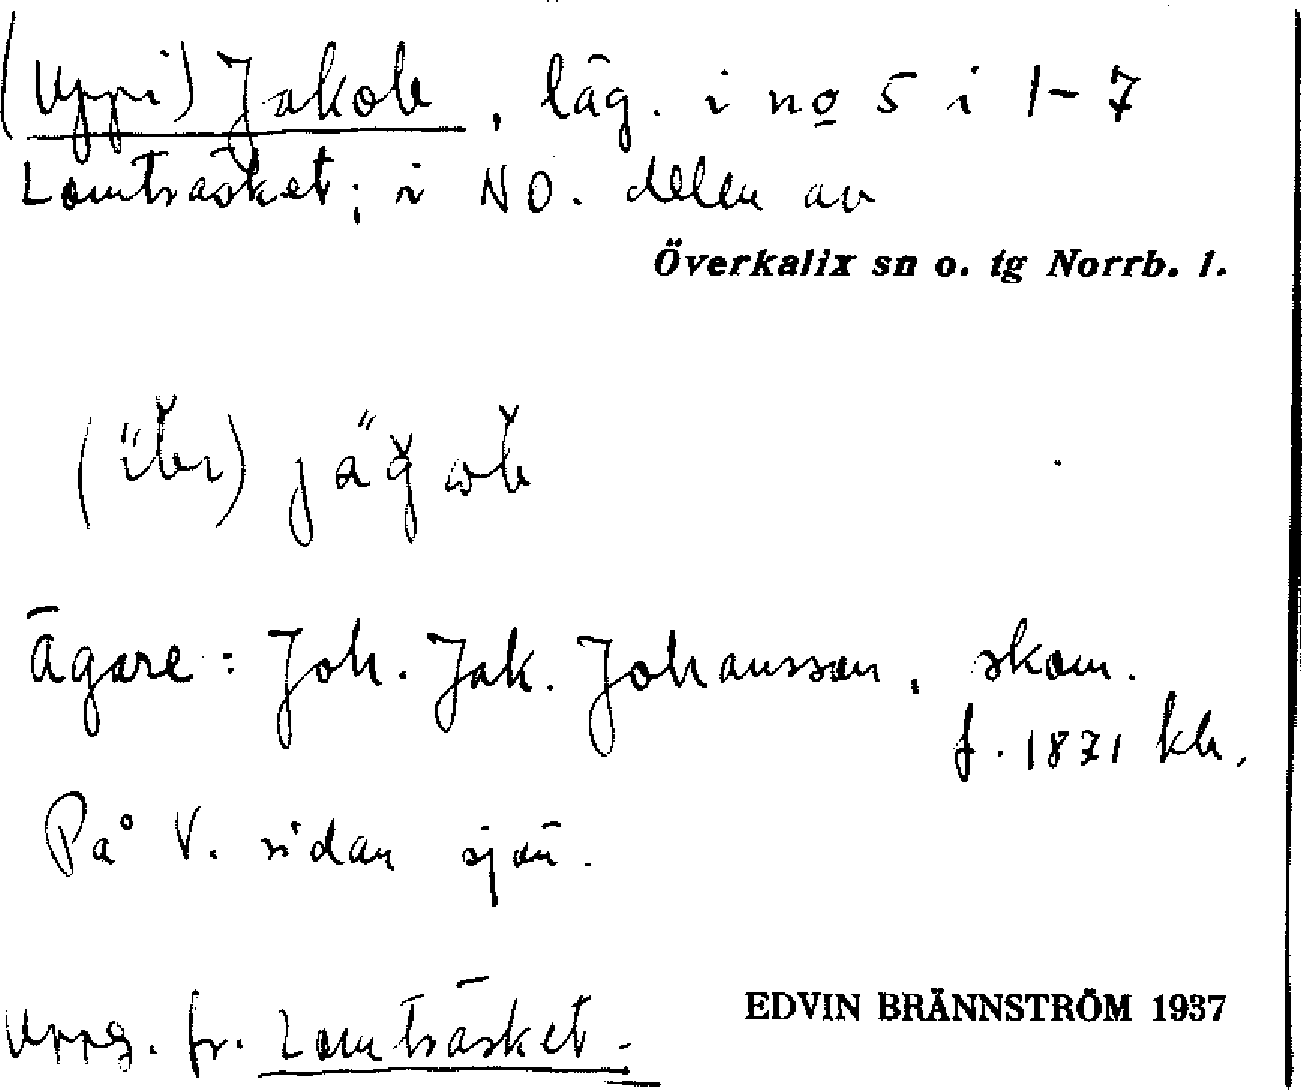 (Uppi) Jakob, läg. i no 5 i 1-7
Lomträsket; i NO. delen av
Överkalix sn o. tg Norrb. l.
Ägare: Joh. Jak. Johansson, skom.
f. 1871 kb.
På V. sidan sjön.
Uppg. fr. Lomträsket.
EDVIN BRÄNNSTRÖM 1937